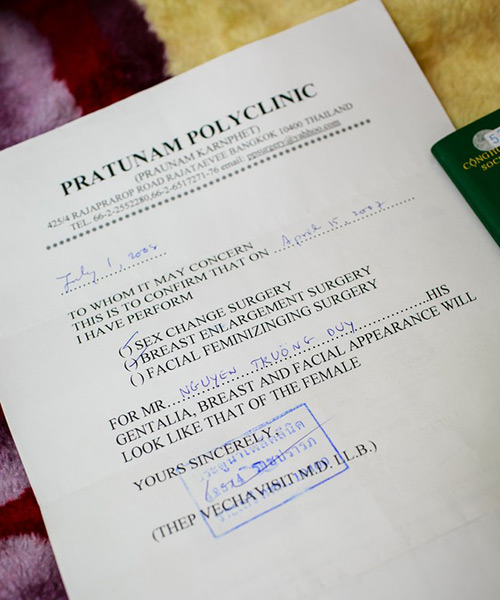 PRATUNAM POLYCLINIC
(PRAUNAM KARNPHET)
425/4 RAJAPRAROP ROAD RAJATAEVEE BANGKOK 10400 THAILAND
TEL. 66-2-2552280,66-2-6517271-76 email: ppsurgery@yahoo.com
July 1, 2006
TO WHOM IT MAY CONCERN
THIS IS TO CONFIRM THAT ON April 15, 2007
I HAVE PERFORM
( ) SEX CHANGE SURGERY
( ) BREAST ENLARGEMENT SURGERY
( ) FACIAL FEMINIZINGING SURGERY
FOR MR. NGUYEN TRƯỜNG DUY HIS
GENTALIA, BREAST AND FACIAL APPEARANCE WILL
LOOK LIKE THAT OF THE FEMALE
YOURS SINCERELY,
(THEP VECHAVISIT M.D. LL.B.)
CỘNG H